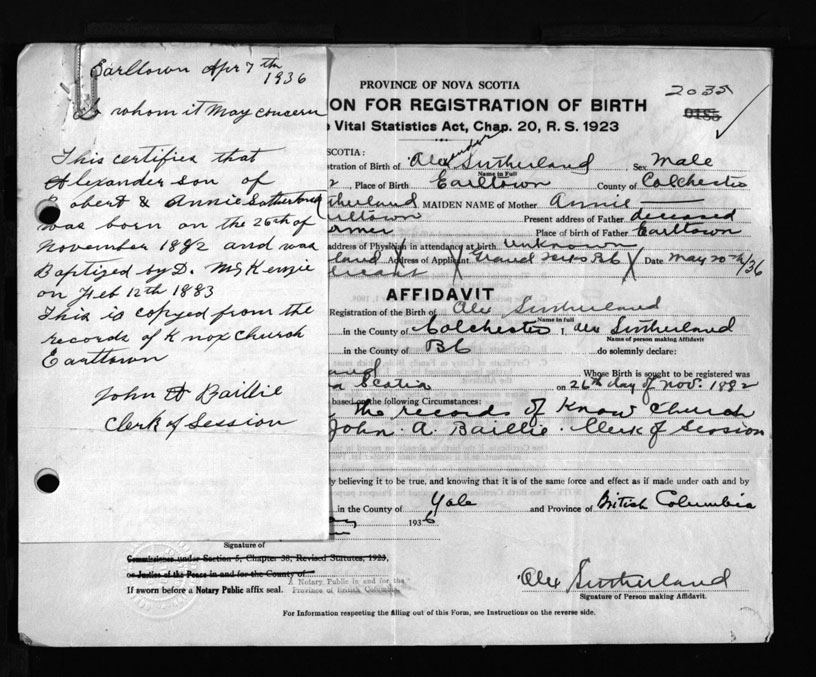 Earltown Apr 7th
1936
To whom it May concern
This certifies that
Alexander son of
Robert & Annie Sutherland
was born on the 26th of
November 1882 and was
Baptized by D. McKenzie
on Feb 12th 1883
This is copyed from the
records of Knox Church
Earltown
John A Baillie
Clerk of Session
PROVINCE OF NOVA SCOTIA
2035
ON FOR REGISTRATION OF BIRTH
Vital Statistics Act, Chap. 20, R. S. 1923
SCOTIA:
istration of Birth of Alexander Sutherland Sex Male
Name in Full
, Place of Birth Earltown County of Colchester
therland MAIDEN NAME of Mother Annie
arltown Present address of Father deceased
armer Place of birth of Father Earltown
address of Physician in attendance at birth unknown
land Address of Applicant Grand Forks BC Date May 20th/36
licant
AFFIDAVIT
Registration of the Birth of Alex Sutherland
Name in full
in the County of Colchester I, Alex Sutherland
Name of person making Affidavit
in the County of BC do solemnly declare:
land Whose Birth is sought to be registered was
a Scotia on 26th day of Nov. 1882
based on the following Circumstances:
the records of Know Church
John. A. Baillie. Clerk of Session
ly believing it to be true, and knowing that it is of the same force and effect as if made under oath and by
in the County of Yale and Province of British Columbia
1936
Signature of
Commissioner under Section 5, Chapter 38, Revised Statutes, 1923,
or Justice of the Peace in and for the County of
A Notary Public in and for the
If sworn before a Notary Public affix seal. Province of British Columbia
Alex Sutherland
Signature of Person making Affidavit.
For Information respecting the filling out of this Form, see Instructions on the reverse side.